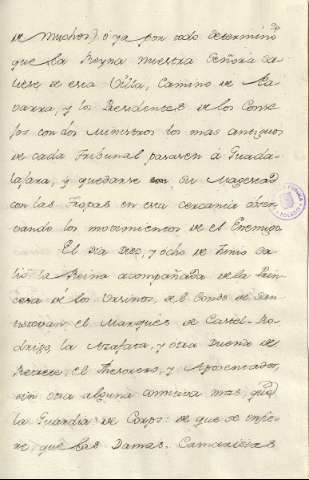 de muchos) ó ya por todo determinó
que la Reyna nuestra Señora sa
liese de esta Villa, Camino de Na
varra, y los Presidentes de los Conse
jos con dos Ministros los mas antiguos
de cada Tribunal pasasen á Guada-
lajara, y quedarse su Magestad
con las Tropas en esta cercania obser
vando los movimientos de el Enemigo.
El dia diez, y ócho de Junio sa
lió la Reina acompañada de la Prin
cesa de los Ursinos, del Conde de San
tistevan, el Marques de Castel-Ro
drigo, la Azafata, y otra Dueña de
Retrete, el Thesorero, y Aposentador,
sin otra alguna comitiva mas, que
la Guardia de Corps: de que se infie
re, que las Damas, Camaristas